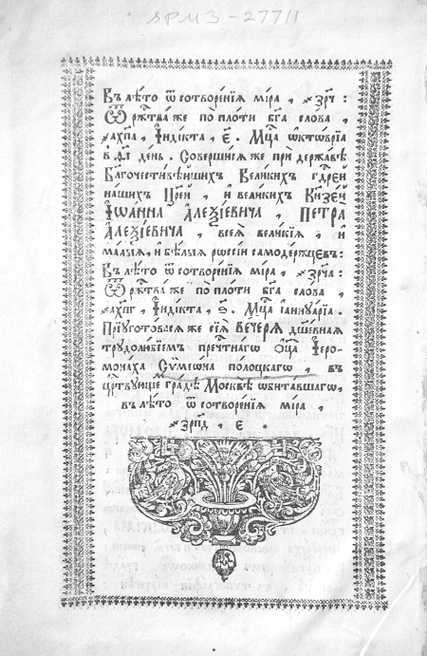 ЯРМЗ - 27711
Въ лѣто ѿ сотворенїѧ мїра, ҂зрч҃:
Ѿ рж҃тва же по плоти бг҃а слова,
҂ахпа, Їндїкта, є҃. Мц҃а ѡктѡврїа
в день. Совершисѧ же при державѣ
Благочестивѣйшихъ Великихъ гд҃рей
нашихъ Цр҃ей, и великихъ Кн҃зей
Їѡанна Алеѯїевича, Петра
Алеѯїевича, всеѧ великїѧ, и
малыѧ, и бѣлыѧ рѡссїи самодержцевъ:
Въ лѣто ѿ сотворенїѧ мїра, ҂зрча:
Ѿ рж҃тва же по плоти бг҃а слова,
Їндїкта, ѕ҃. Мц҃а їаннуарїа.
Прїуготовасѧ же сїѧ вечерѧ дш҃евнаѧ
трудолюбїемъ пречⷭ҇тнагѡ ѻц҃а Їеро-
монаха Сѵмеѡна полоцкагѡ, въ
цр҃твующе градѣ Москвѣ ѡбитавшагѡ,
въ лѣто ѿ сотворенїѧ мїра,
҂зрп҃д, є.